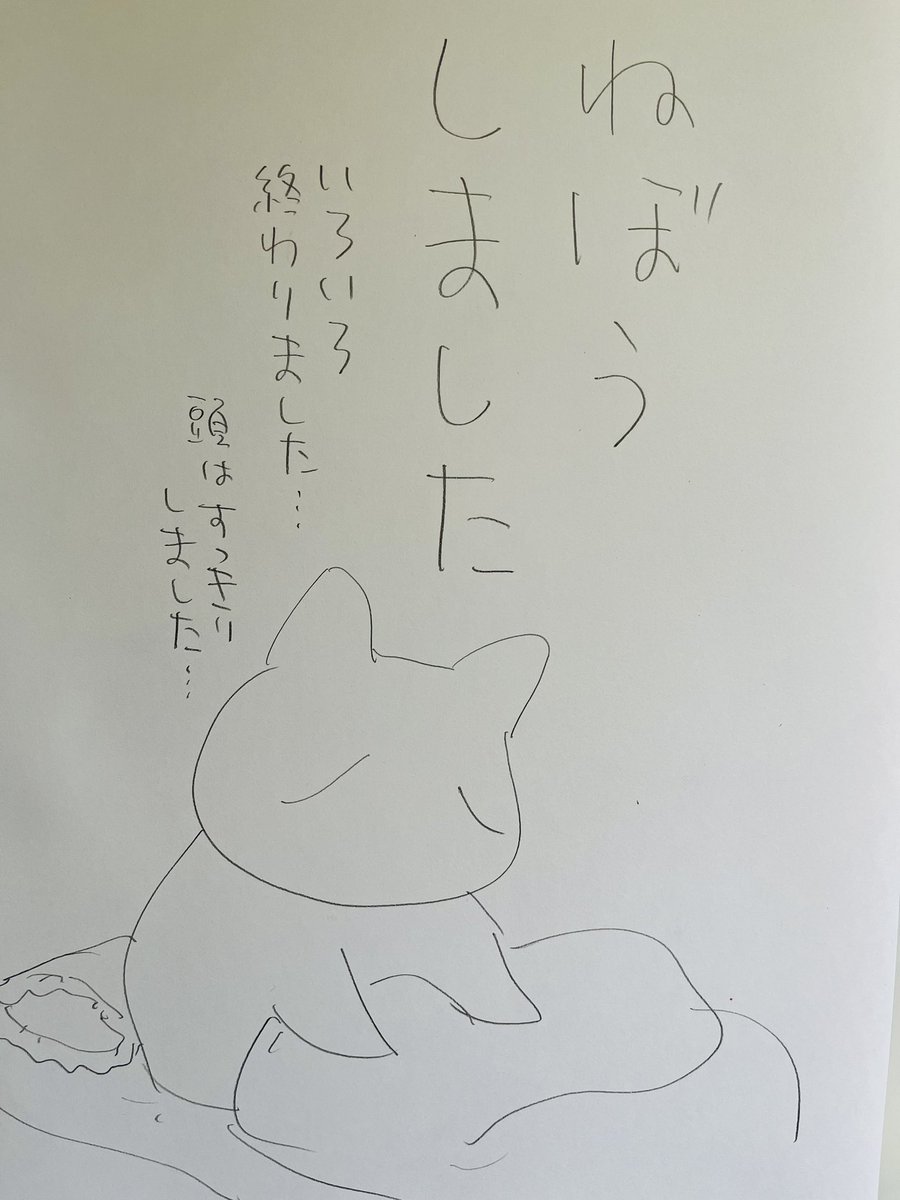 ねぼう
しました
いろいろ
終わりました…
頭はすっきり
しました…